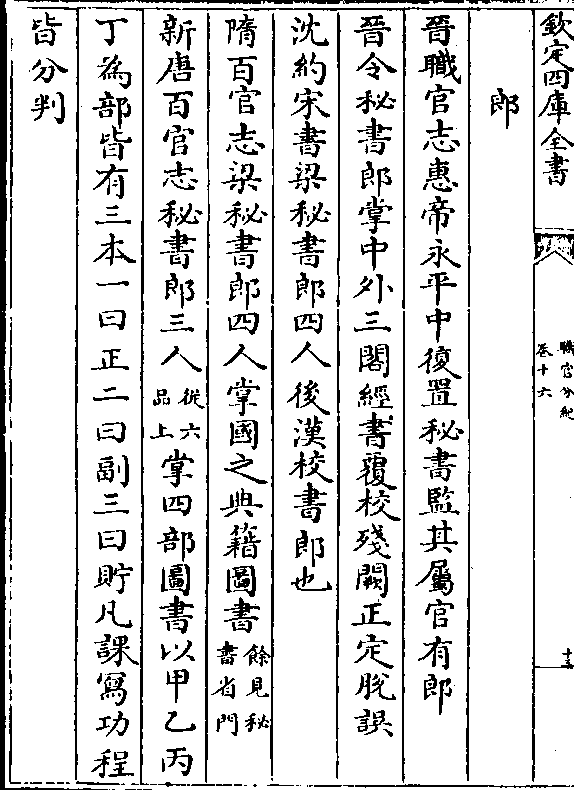 欽定四庫全書
職官分紀
卷十六
十三
郎
晉職官志惠帝永平中復置秘書監其屬官有郎
晉令秘書郎掌中外三閣經書覆校殘闕正定脫誤
沈約宋書梁秘書郎四人後漢校書郎也
隋百官志梁秘書郎四人掌國之典籍圖書餘見秘書省門
新唐百官志秘書郎三人從六品上掌四部圖書以甲乙丙
丁為部皆有三本一曰正二曰副三曰貯凡課寫功程
皆分判